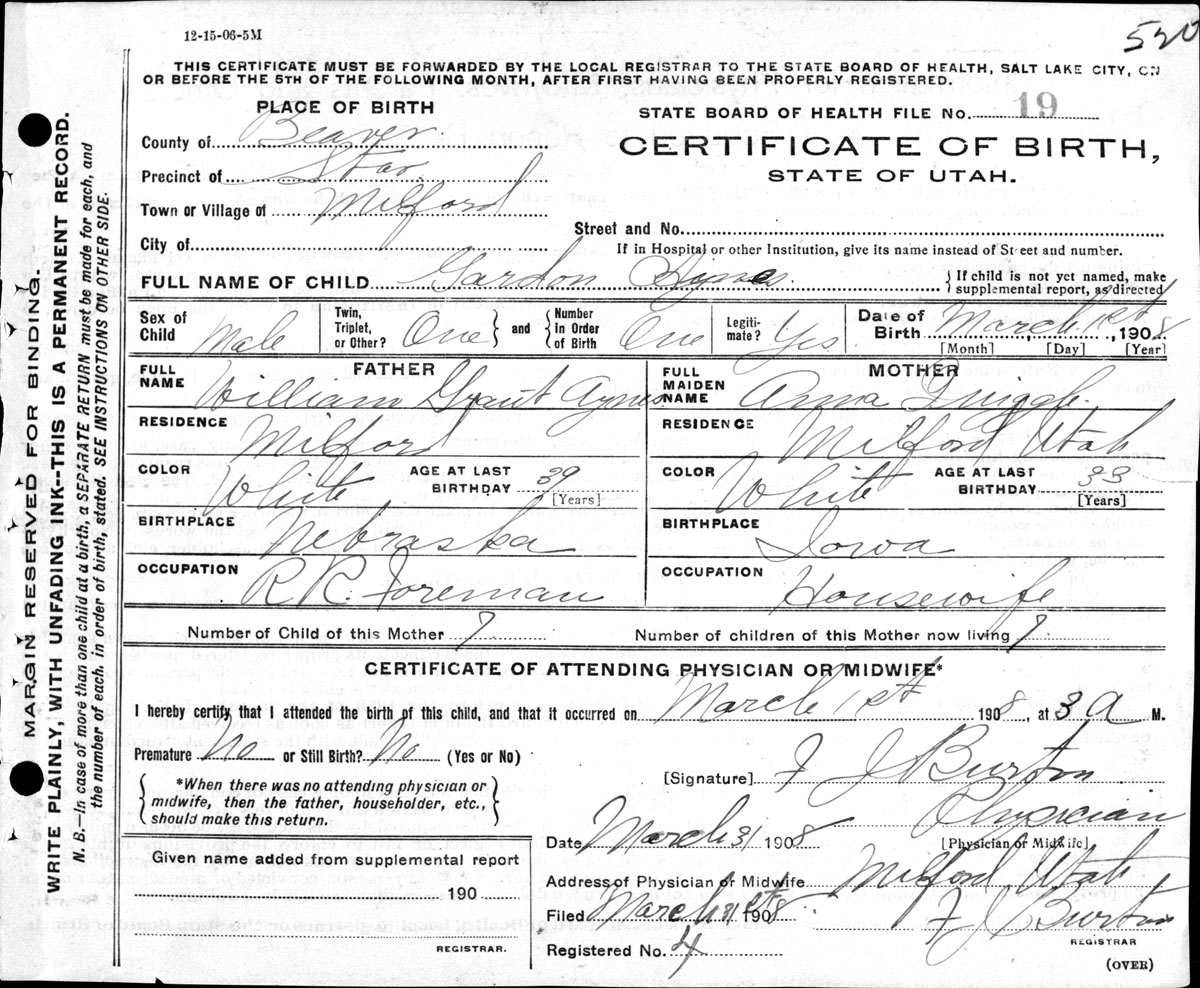 12-15-06-5M
520
THIS CERTIFICATE MUST BE FORWARDED BY THE LOCAL REGISTRAR TO THE STATE BOARD OF HEALTH, SALT LAKE CITY, ON
OR BEFORE THE 5TH OF THE FOLLOWING MONTH, AFTER FIRST HAVING BEEN PROPERLY REGISTERED.
PLACE OF BIRTH
STATE BOARD OF HEALTH FILE No. 19
County of Beaver
CERTIFICATE OF BIRTH,
Precinct of Star
STATE OF UTAH.
Town or Village of Milford
Street and No.
City of
If in Hospital or other Institution, give its name instead of Street and number.
FULL NAME OF CHILD Gardon
{ If child is not yet named, make supplemental report, as directed
Sex of Child Male
Twin, Triplet, or Other? One } and { Number in Order of Birth One
Legitimate? Yes
Date of Birth March 1st, 1908
[Month] [Day] [Year]
FATHER
FULL NAME William Grant Aynes
RESIDENCE Milford
COLOR White
AGE AT LAST BIRTHDAY 39
[Years]
BIRTHPLACE Nebraska
OCCUPATION R R. Foreman
MOTHER
FULL MAIDEN NAME Anna Quiggle
RESIDENCE Milford, Utah
COLOR White
AGE AT LAST BIRTHDAY 33
[Years]
BIRTHPLACE Iowa
OCCUPATION Housewife
Number of Child of this Mother 7
Number of children of this Mother now living 7
CERTIFICATE OF ATTENDING PHYSICIAN OR MIDWIFE*
I hereby certify that I attended the birth of this child, and that it occurred on March 1st 1908, at 3 A M.
Premature No or Still Birth? No (Yes or No)
{ *When there was no attending physician or midwife, then the father, householder, etc., should make this return. }
[Signature] F J Burton
Physician
Date March 31 1908
[Physician or Midwife]
Given name added from supplemental report
190
REGISTRAR.
Address of Physician or Midwife Milford, Utah
Filed March 31st 1908
F J Burton
REGISTRAR
Registered No. 4
(OVER)
MARGIN RESERVED FOR BINDING.
WRITE PLAINLY, WITH UNFADING INK--THIS IS A PERMANENT RECORD.
N. B.—In case of more than one child at a birth, a SEPARATE RETURN must be made for each, and
the number of each, in order of birth, stated. SEE INSTRUCTIONS ON OTHER SIDE.